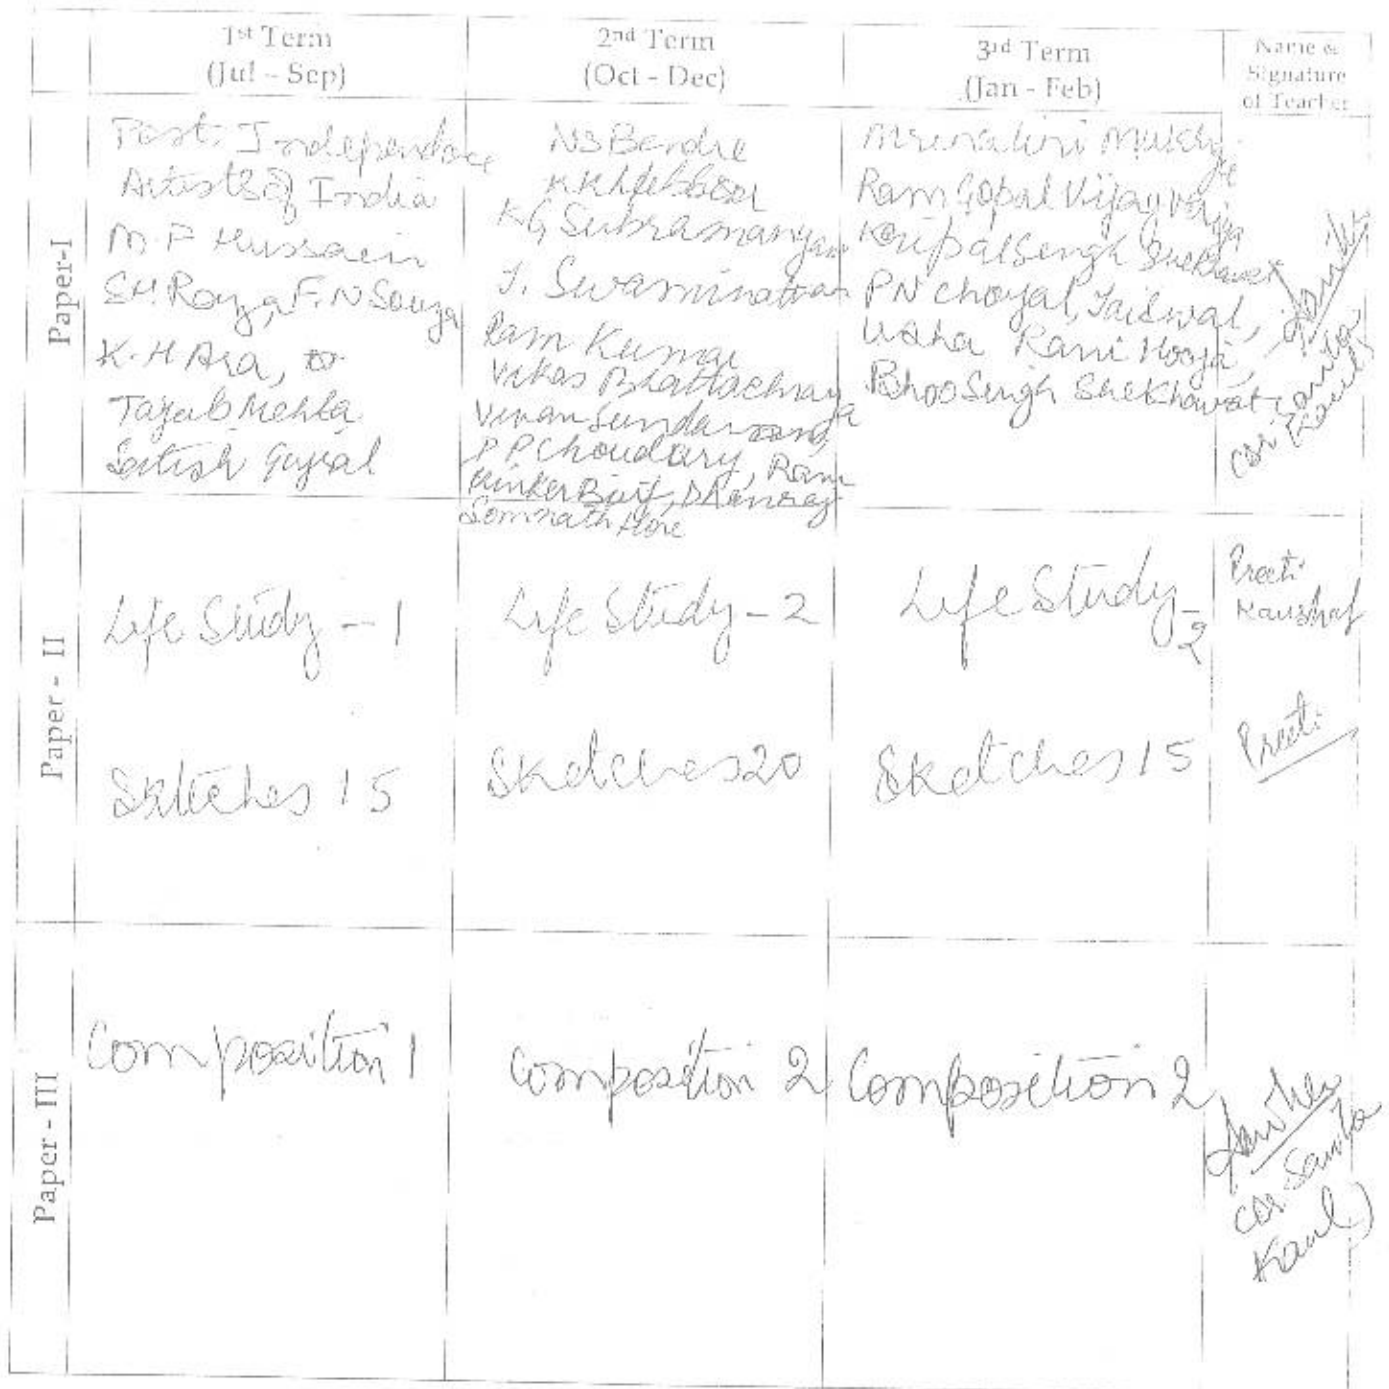 1st Term
(Jul - Sep)
2nd Term
(Oct - Dec)
3rd Term
(Jan - Feb)
Name &
Signature
of Teacher
Paper-I
Post. Independence
Artists of India
M.F Hussain
S.H. Raza, F.N Souza
K.H Ara,
Tayeb Mehta
Satish Gujral
NS Bendre
K K Hebbar
K.G Subramanyan
J. Swaminathan
Ram Kumar
Vikas Bhattacharya
Vivan Sundaram,
P P Choudary, Ram
Kinker Baij, Dhanraj
Somnath Hore
Mrinalini Mukhrjee
Ram Gopal Vijayvargia
Kripal Singh Shekhawat
PN Choyal, Jaiswal,
Usha Rani Hooja,
Bhoo Singh Shekhawat
Paper - II
Life Study - 1
Sketches 15
Life Study - 2
Sketches 20
Life Study - 2
Sketches 15
Preeti
Kaushal
Preeti
Paper - III
Composition 1
Composition 2
Composition 2
Kaul)